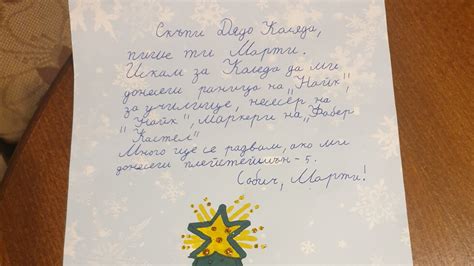 Скъпи Дядо Коледа,
пише ти Марти.
Искам за Коледа да ми
донесеш раница на "Найк",
за училище, несесер на
"Найк", маркери на "Фабер
Кастел"
Много ще се радвам, ако ми
донесеш плейстейшън - 5.
Собич, Марти!